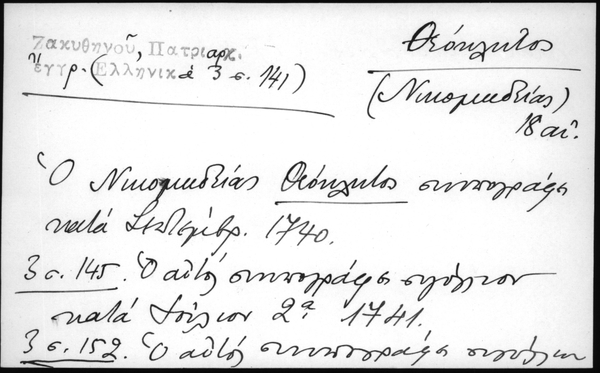 Ζακυθηνοῦ, Πατριαρχ.
ἔγγρ. (Ἑλληνικά 3 σ. 141)
Θεόκλητος
(Νικομηδείας)
18 αἰ.
Ὁ Νικομηδείας Θεόκλητος συνυπογράφει
κατά Σεπτέμβρ. 1740.
3 σ. 145. Ὁ αὐτός συνυπογράφει σιγίλλιον
κατά Ἰούλιον 2α 1741.
3 σ. 152. Ὁ αὐτός συνυπογράφει σιγίλλιον